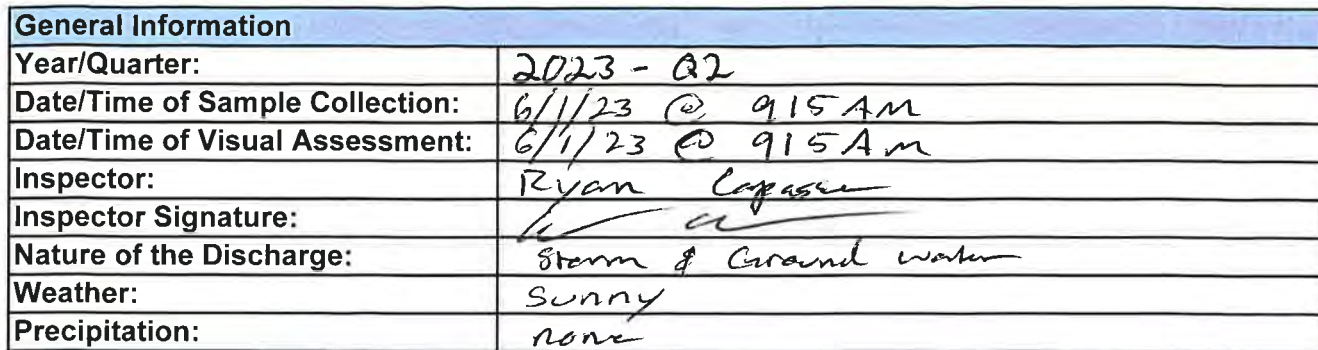 General Information
Year/Quarter: 2023 - Q2
Date/Time of Sample Collection: 6/1/23 @ 915 AM
Date/Time of Visual Assessment: 6/1/23 @ 915 Am
Inspector: Ryan
Inspector Signature:
Nature of the Discharge: Storm & Ground water
Weather: Sunny
Precipitation: none